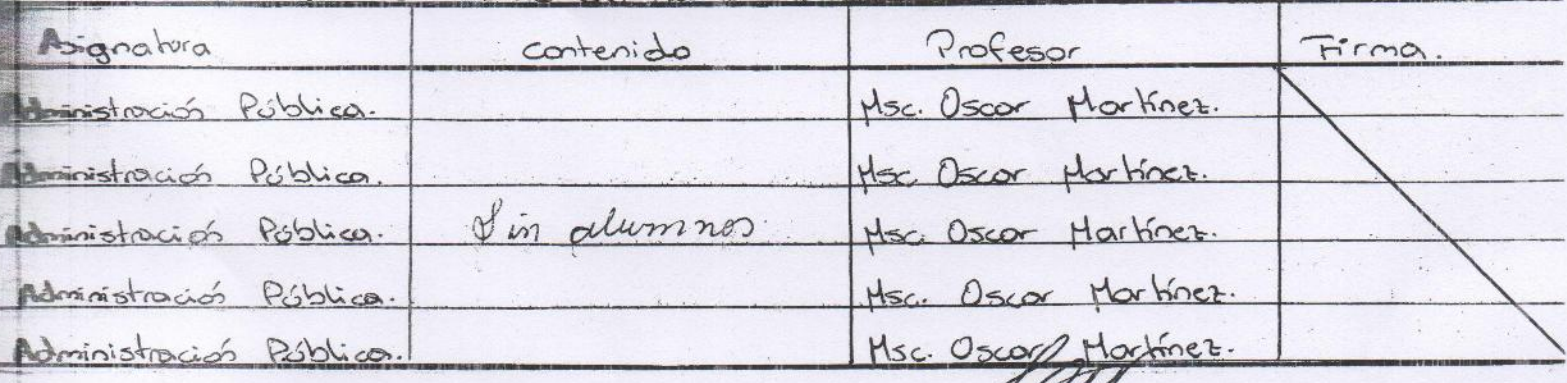 Asignatura contenido Profesor Firma.
Administración Pública. Msc. Oscar Martínez.
Administración Pública. Msc. Oscar Martínez.
Administración Pública. Sin alumnos Msc. Oscar Martínez.
Administración Pública. Msc. Oscar Martínez.
Administración Pública. Msc. Oscar Martínez.